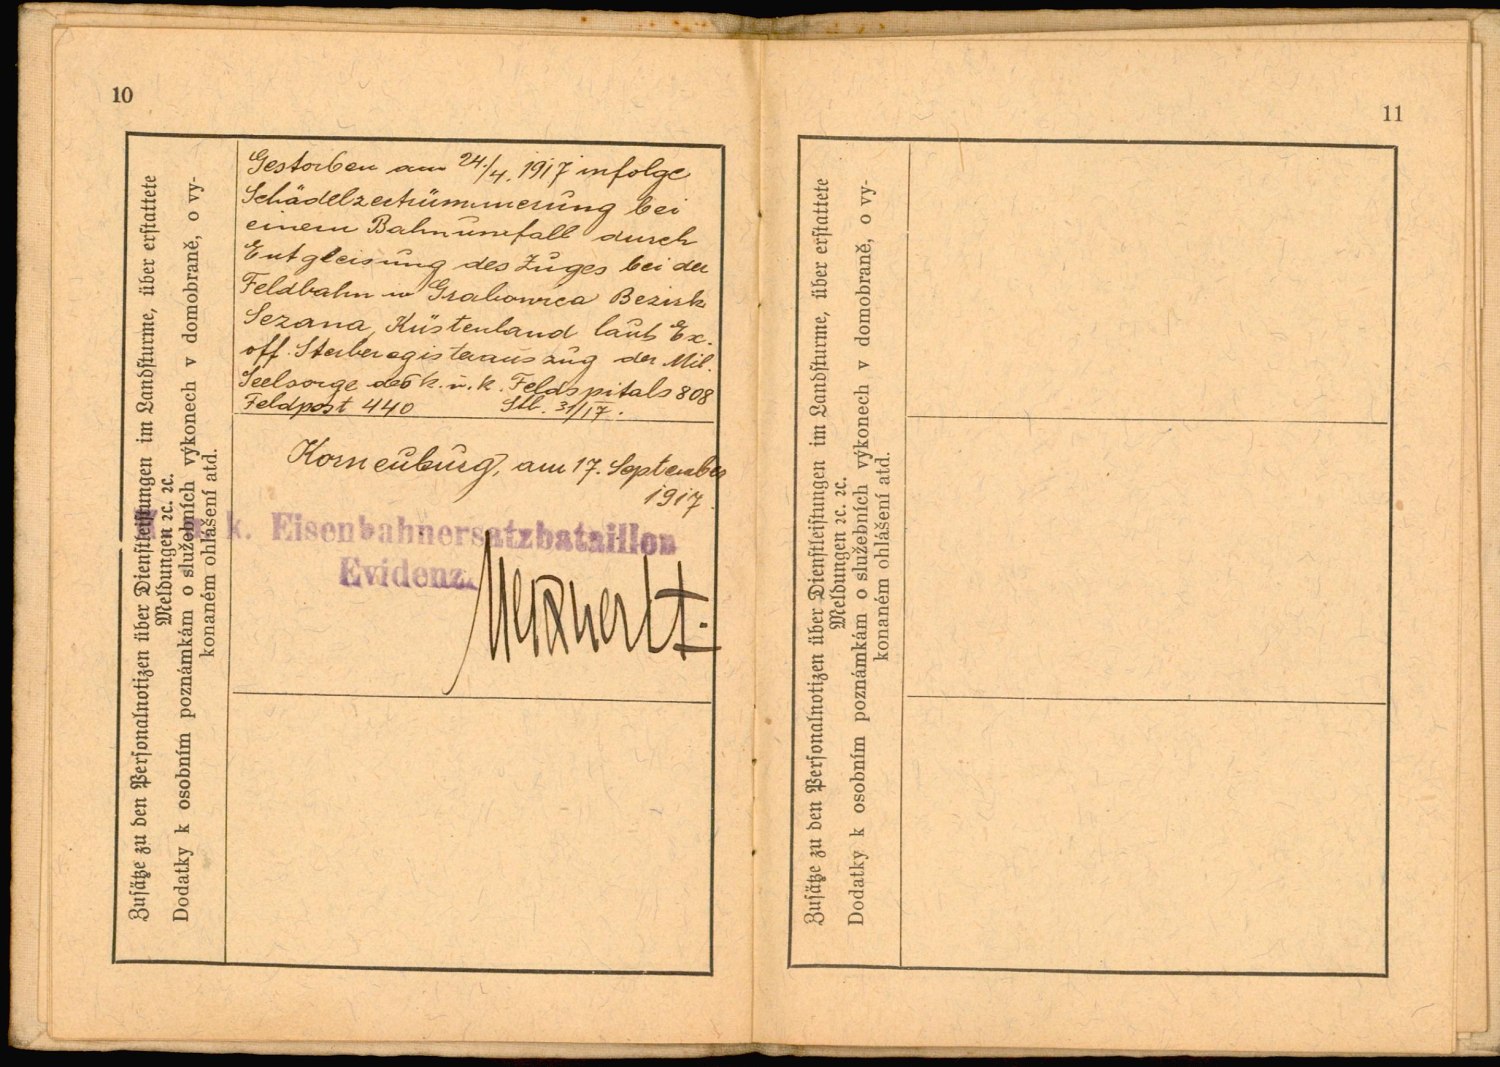 10
Zusätze zu den Personalnotizen über Dienstleistungen im Landsturme, über erstattete
Meldungen ꝛc. ꝛc.
Dodatky k osobním poznámkám o služebních výkonech v domobraně, o vy-
konaném ohlášení atd.
Gestorben am 24./4. 1917 infolge
Schädelzertrümmerung bei
einem Bahnunfall durch
Entgleisung des Zuges bei der
Feldbahn in Grabovica Bezirk
Sezana, Küstenland laut Ex.
off. Sterberegisterauszug der Mil.
Seelsorge des k. u. k. Feldspitals 808
Feldpost 440 Stb. 31/17.
Korneuburg, am 17. September
1917.
K. u. k. Eisenbahnersatzbataillon
Evidenz.
11
Zusätze zu den Personalnotizen über Dienstleistungen im Landsturme, über erstattete
Meldungen ꝛc. ꝛc.
Dodatky k osobním poznámkám o služebních výkonech v domobraně, o vy-
konaném ohlášení atd.